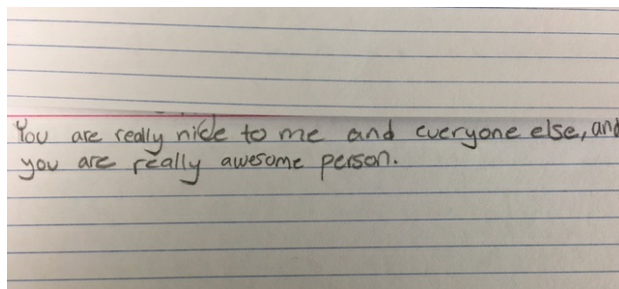 You are really nice to me and everyone else, and
you are really awesome person.